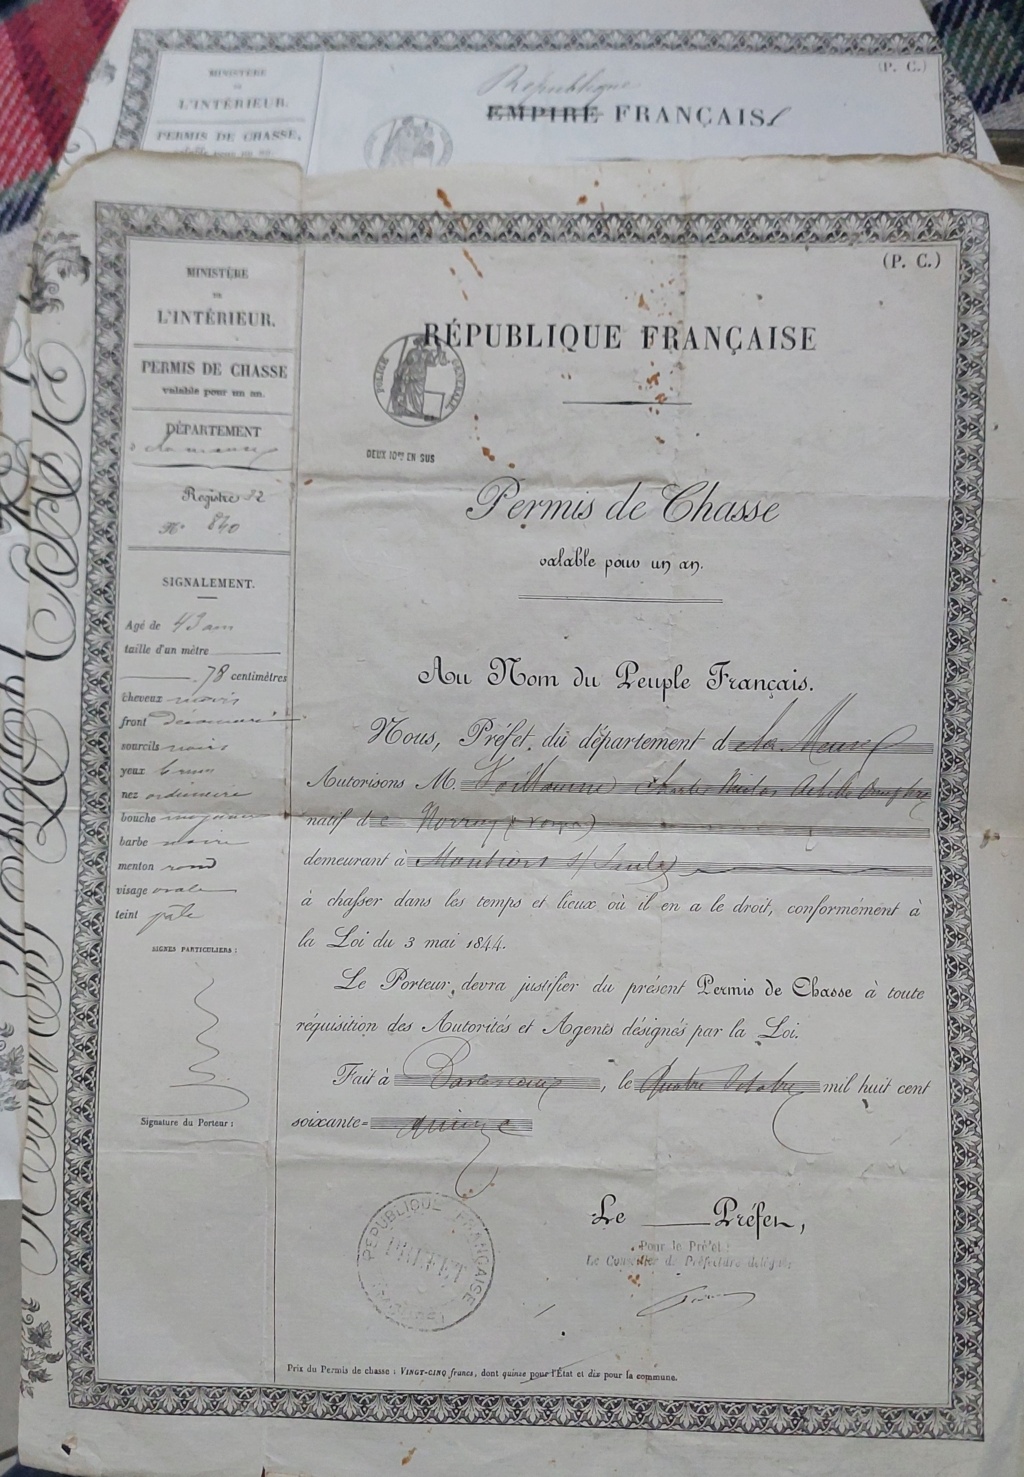 MINISTÈRE
DE
L'INTÉRIEUR.
PERMIS DE CHASSE,
(P. C.)
République
EMPIRE FRANÇAIS
MINISTÈRE
DE
L'INTÉRIEUR.
PERMIS DE CHASSE
valable pour un an.
DÉPARTEMENT
de la meuse
Registre 32
N° 840
SIGNALEMENT.
Agé de 43 ans
taille d'un mètre
78 centimètres
cheveux noirs
front découvert
sourcils noirs
yeux bruns
nez ordinaire
bouche moyenne
barbe noire
menton rond
visage ovale
teint pâle
SIGNES PARTICULIERS :
Signature du Porteur :
(P. C.)
RÉPUBLIQUE FRANÇAISE
POLICE GÉNÉRALE
DEUX 10mes EN SUS
Permis de Chasse
valable pour un an.
Au Nom du Peuple Français.
Nous, Préfet du département de la Meuse
Autorisons M. Vuillaume Charles Nicolas Achille
natif de
demeurant à Montiers s/ Saulx
à chasser dans les temps et lieux où il en a le droit, conformément à
la Loi du 3 mai 1844.
Le Porteur devra justifier du présent Permis de Chasse à toute
réquisition des Autorités et Agents désignés par la Loi.
Fait à Bar-le-Duc, le quatre octobre mil huit cent
soixante-quinze
Le Préfet,
Pour le Préfet :
Le Conseiller de Préfecture délégué
RÉPUBLIQUE FRANÇAISE
PRÉFET
(MEUSE)
Prix du Permis de chasse : VINGT-CINQ francs, dont quinze pour l'État et dix pour la commune.